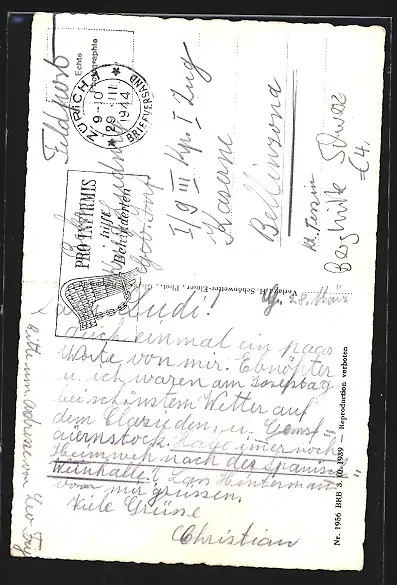 Feldpost
Echte
Photographie
ZÜRICH
29.III
1944
9-10
BRIEFVERSAND
PRO INFIRMIS
hilft
Behinderten
I/9 III Kp. I Zug
Kaserne
Bellinzona
Kt. Tessin
Verlag J. H. Schönwetter-Elmer, Phot.
28. März
Rudi!
Auch einmal ein paar
Worte von mir. Ebnöther
u. ich waren am Joseptag
bei schönstem Wetter auf
dem Clariden, u. Gems-
aiernstock. Habe immer noch
Heimweh nach der Spanisch
Weinhalle! Lass Hintermann
von mir grüssen.
Viele Grüsse
Christian
Nr. 1956 BRB 3.10.1939 — Reproduction verboten